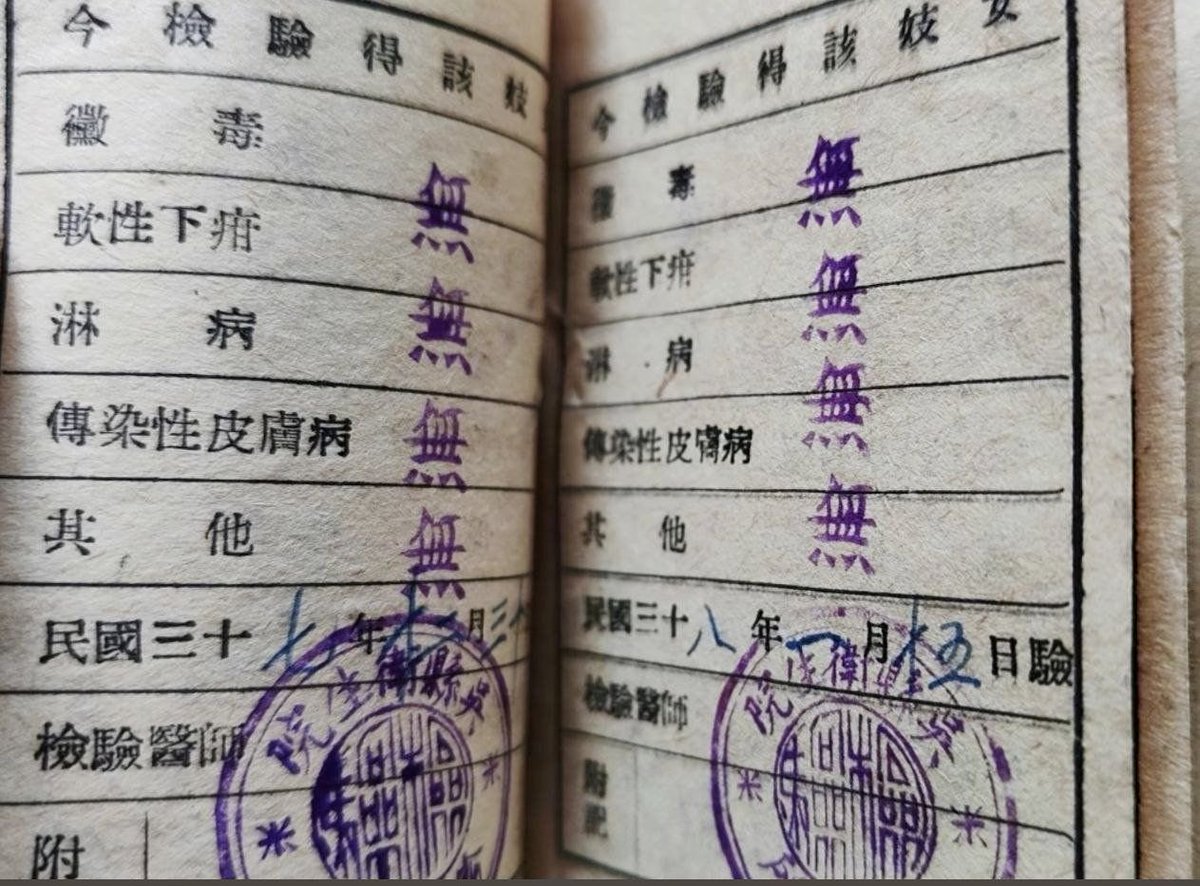 今檢驗得該妓
黴毒 無
軟性下疳 無
淋病 無
傳染性皮膚病 無
其他
民國三十七年十二月三
檢驗醫師
附
吳縣衛生院
今檢驗得該妓女
黴毒 無
軟性下疳 無
淋病 無
傳染性皮膚病 無
其他
民國三十八年一月十五日驗
檢驗醫師
附記
吳縣衛生院